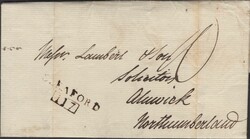 Messrs. Lambert & Son
Solicitors
Alnwick
Northumberland
AFORD
117